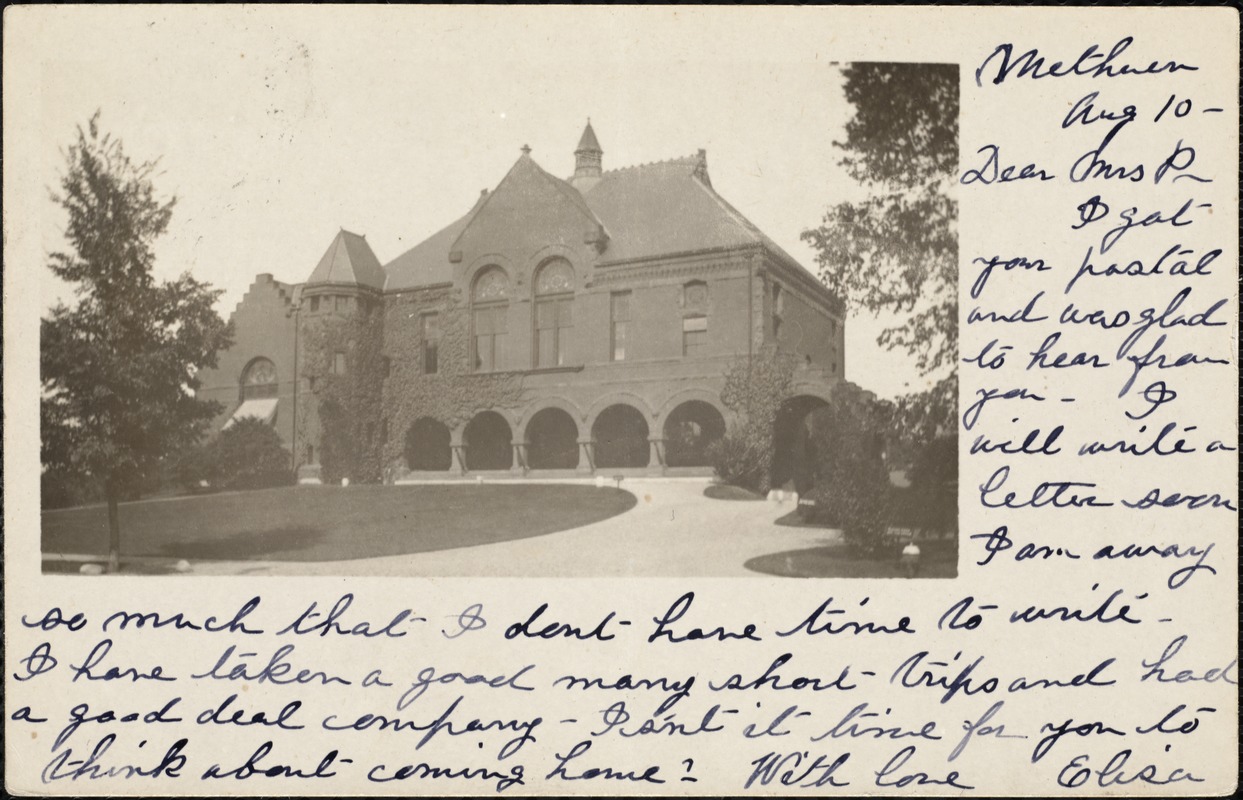 Methuen
Aug 10 -
Dear Mrs P-
I got
your postal
and was glad
to hear from
you - I
will write a
letter soon
I am away
so much that I dont have time to write -
I have taken a good many short trips and had
a good deal company - Isn't it time for you to
think about coming home? With love Elisa